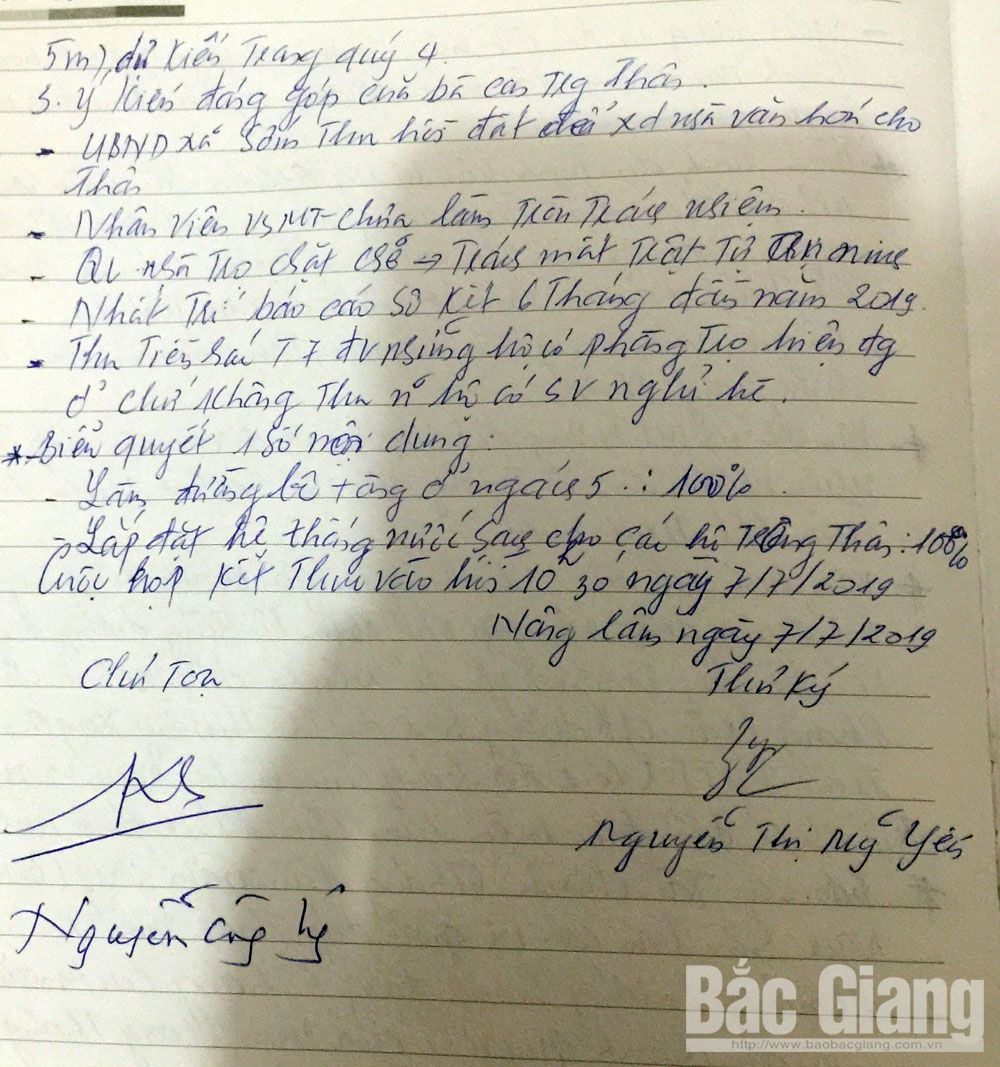 5m), dự kiến trong quý 4.
3. Ý kiến đóng góp của bà con trg thôn.
- UBND xã sớm thu hồi đất để xd nhà văn hoá cho
thôn
- Nhân viên VSMT chưa làm tròn trách nhiệm.
- QL nhà trọ chặt chẽ → tránh mất trật tự an ninh
- Nhất trí báo cáo sơ kết 6 tháng đầu năm 2019.
- Thu tiền rác T7 đv những hộ có phòng trọ hiện đg
ở chứ không thu n~ hộ có SV nghỉ hè.
* Biểu quyết 1 số nội dung:
- Làm đường bê tông ở ngách 5 : 100%
- Lắp đặt hệ thống nước sạch cho các hộ trong thôn: 100%
Cuộc họp kết thúc vào hồi 10h30 ngày 7/7/2019
Nông Lâm ngày 7/7/2019
Chủ toạ
Thư ký
Nguyễn Thị Mỹ Yên
Nguyễn Công Lý
Bắc Giang
http://www.baobacgiang.com.vn